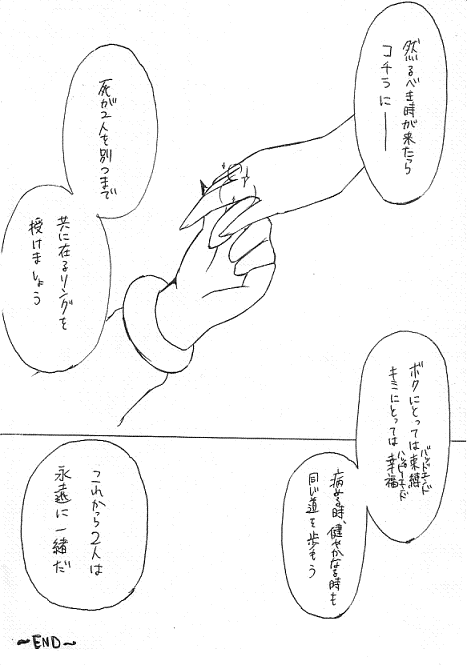 然るべき時が来たら
コチラに――
死が2人を別つまで
共に在るリングを
授けましょう
ボクにとっては束縛
バッドエンド
キミにとっては幸福
ハッピーエンド
病める時、健やかなる時も
同じ道を歩もう
これから2人は
永遠に一緒だ
~END~